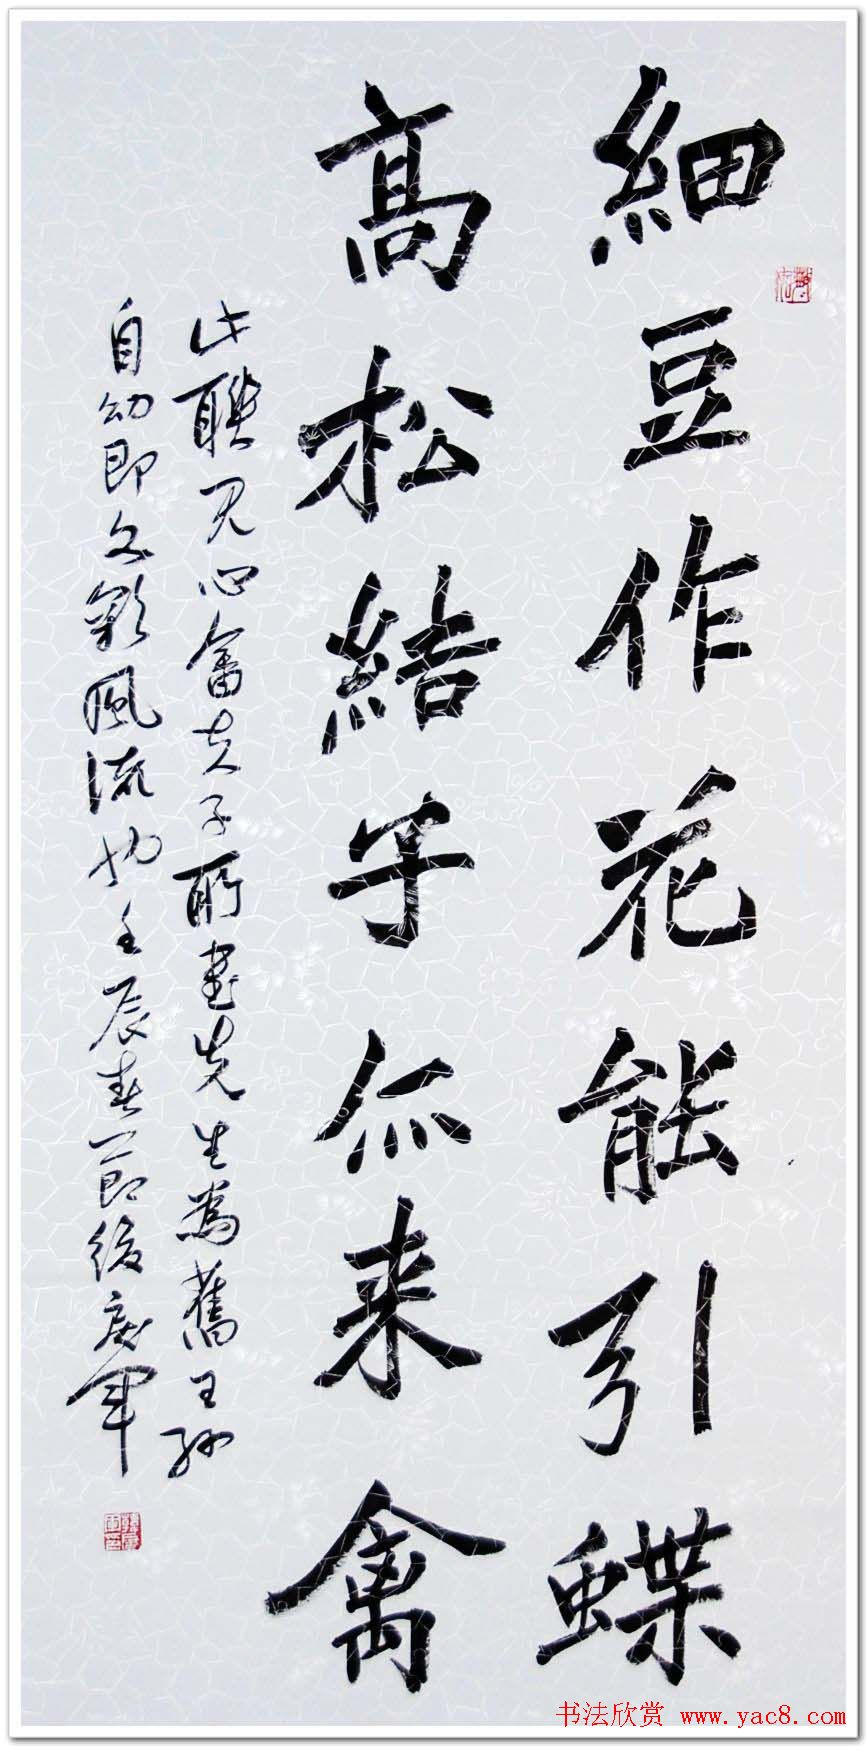 細豆作花能引蝶
高松結子亦来禽
此聯見心畬夫子所書先生為舊王孫
自幼即文彩風流也壬辰春節後廣軍
书法欣赏 www.yac8.com